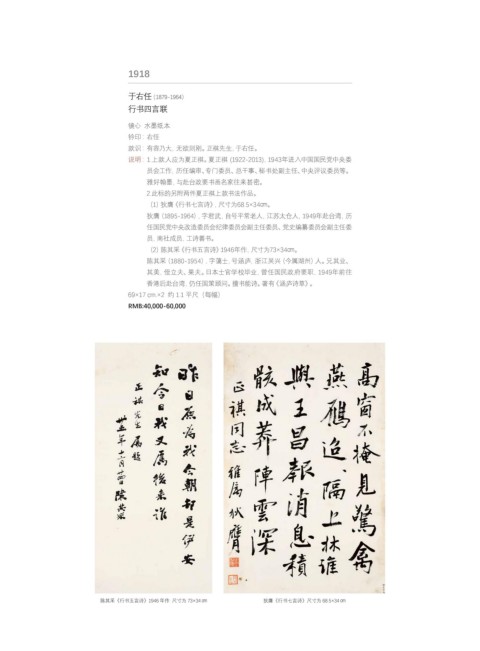 1918
于右任 (1879-1964)
行书四言联
镜心 水墨纸本
钤印：右任
款识：有容乃大，无欲则刚。正祺先生，于右任。
说明：1.上款人应为夏正祺。夏正祺 (1922-2013)，1943年进入中国国民党中央委
员会工作，历任编审、专门委员、总干事、秘书处副主任、中央评议委员等。
雅好翰墨，与赴台政要书画名家往来甚密。
2.此标的另附两件夏正祺上款书法作品。
（1）狄膺《行书七言诗》，尺寸为68.5×34cm。
狄膺 (1895-1964)，字君武，自号平常老人，江苏太仓人，1949年赴台湾，历
任国民党中央改造委员会纪律委员会副主任委员、党史编纂委员会副主任委
员，南社成员，工诗善书。
（2）陈其采《行书五言诗》1946年作，尺寸为73×34cm。
陈其采 (1880-1954)，字蔼士，号涵庐，浙江吴兴（今属湖州）人。兄其业、
其美，侄立夫、果夫。日本士官学校毕业，曾任国民政府要职，1949年前往
香港后赴台湾，仍任国策顾问。擅书能诗，著有《涵庐诗草》。
69×17 cm.×2 约 1.1 平尺（每幅）
RMB:40,000-60,000
昨日蔗为我今朝却是伊安
知今日我又属后来谁
正祺先生属题
卅五年十一月廿四日 陈其采
高窗不掩见惊禽
燕雁迢迢隔上林谁
与王昌报消息积
骸成莽阵云深
正祺同志雅属 狄膺
陈其采《行书五言诗》1946 年作 尺寸为 73×34cm
狄膺《行书七言诗》尺寸为 68.5×34cm